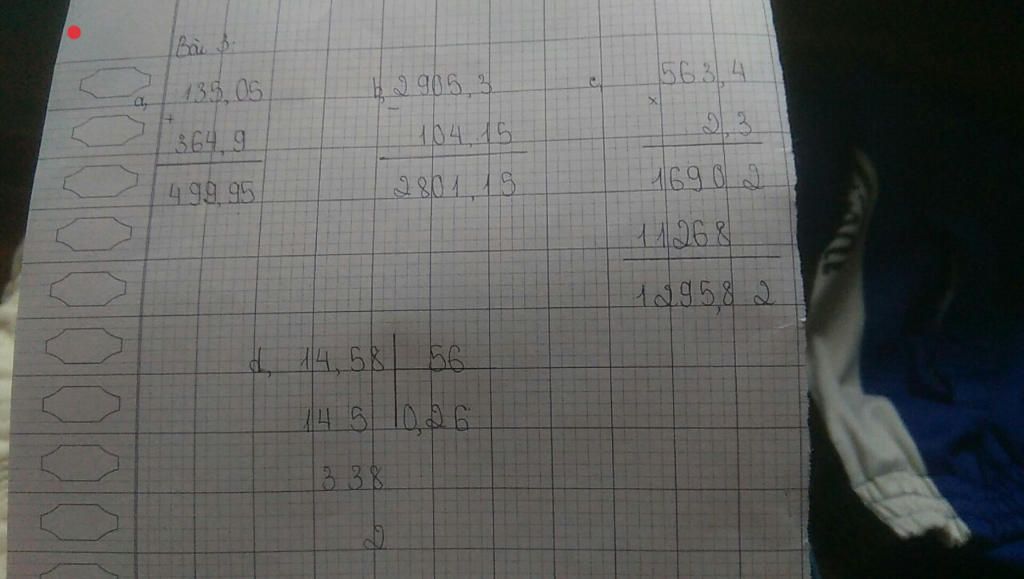 Bài 3:
a, 135,05
+
364,9
499,95
b, 2905,3
-
104,15
2801,15
c, 563,4
x
2,3
1690 2
11268
1295,8 2
d, 14,58 56
14 5 0,26
3 38
2